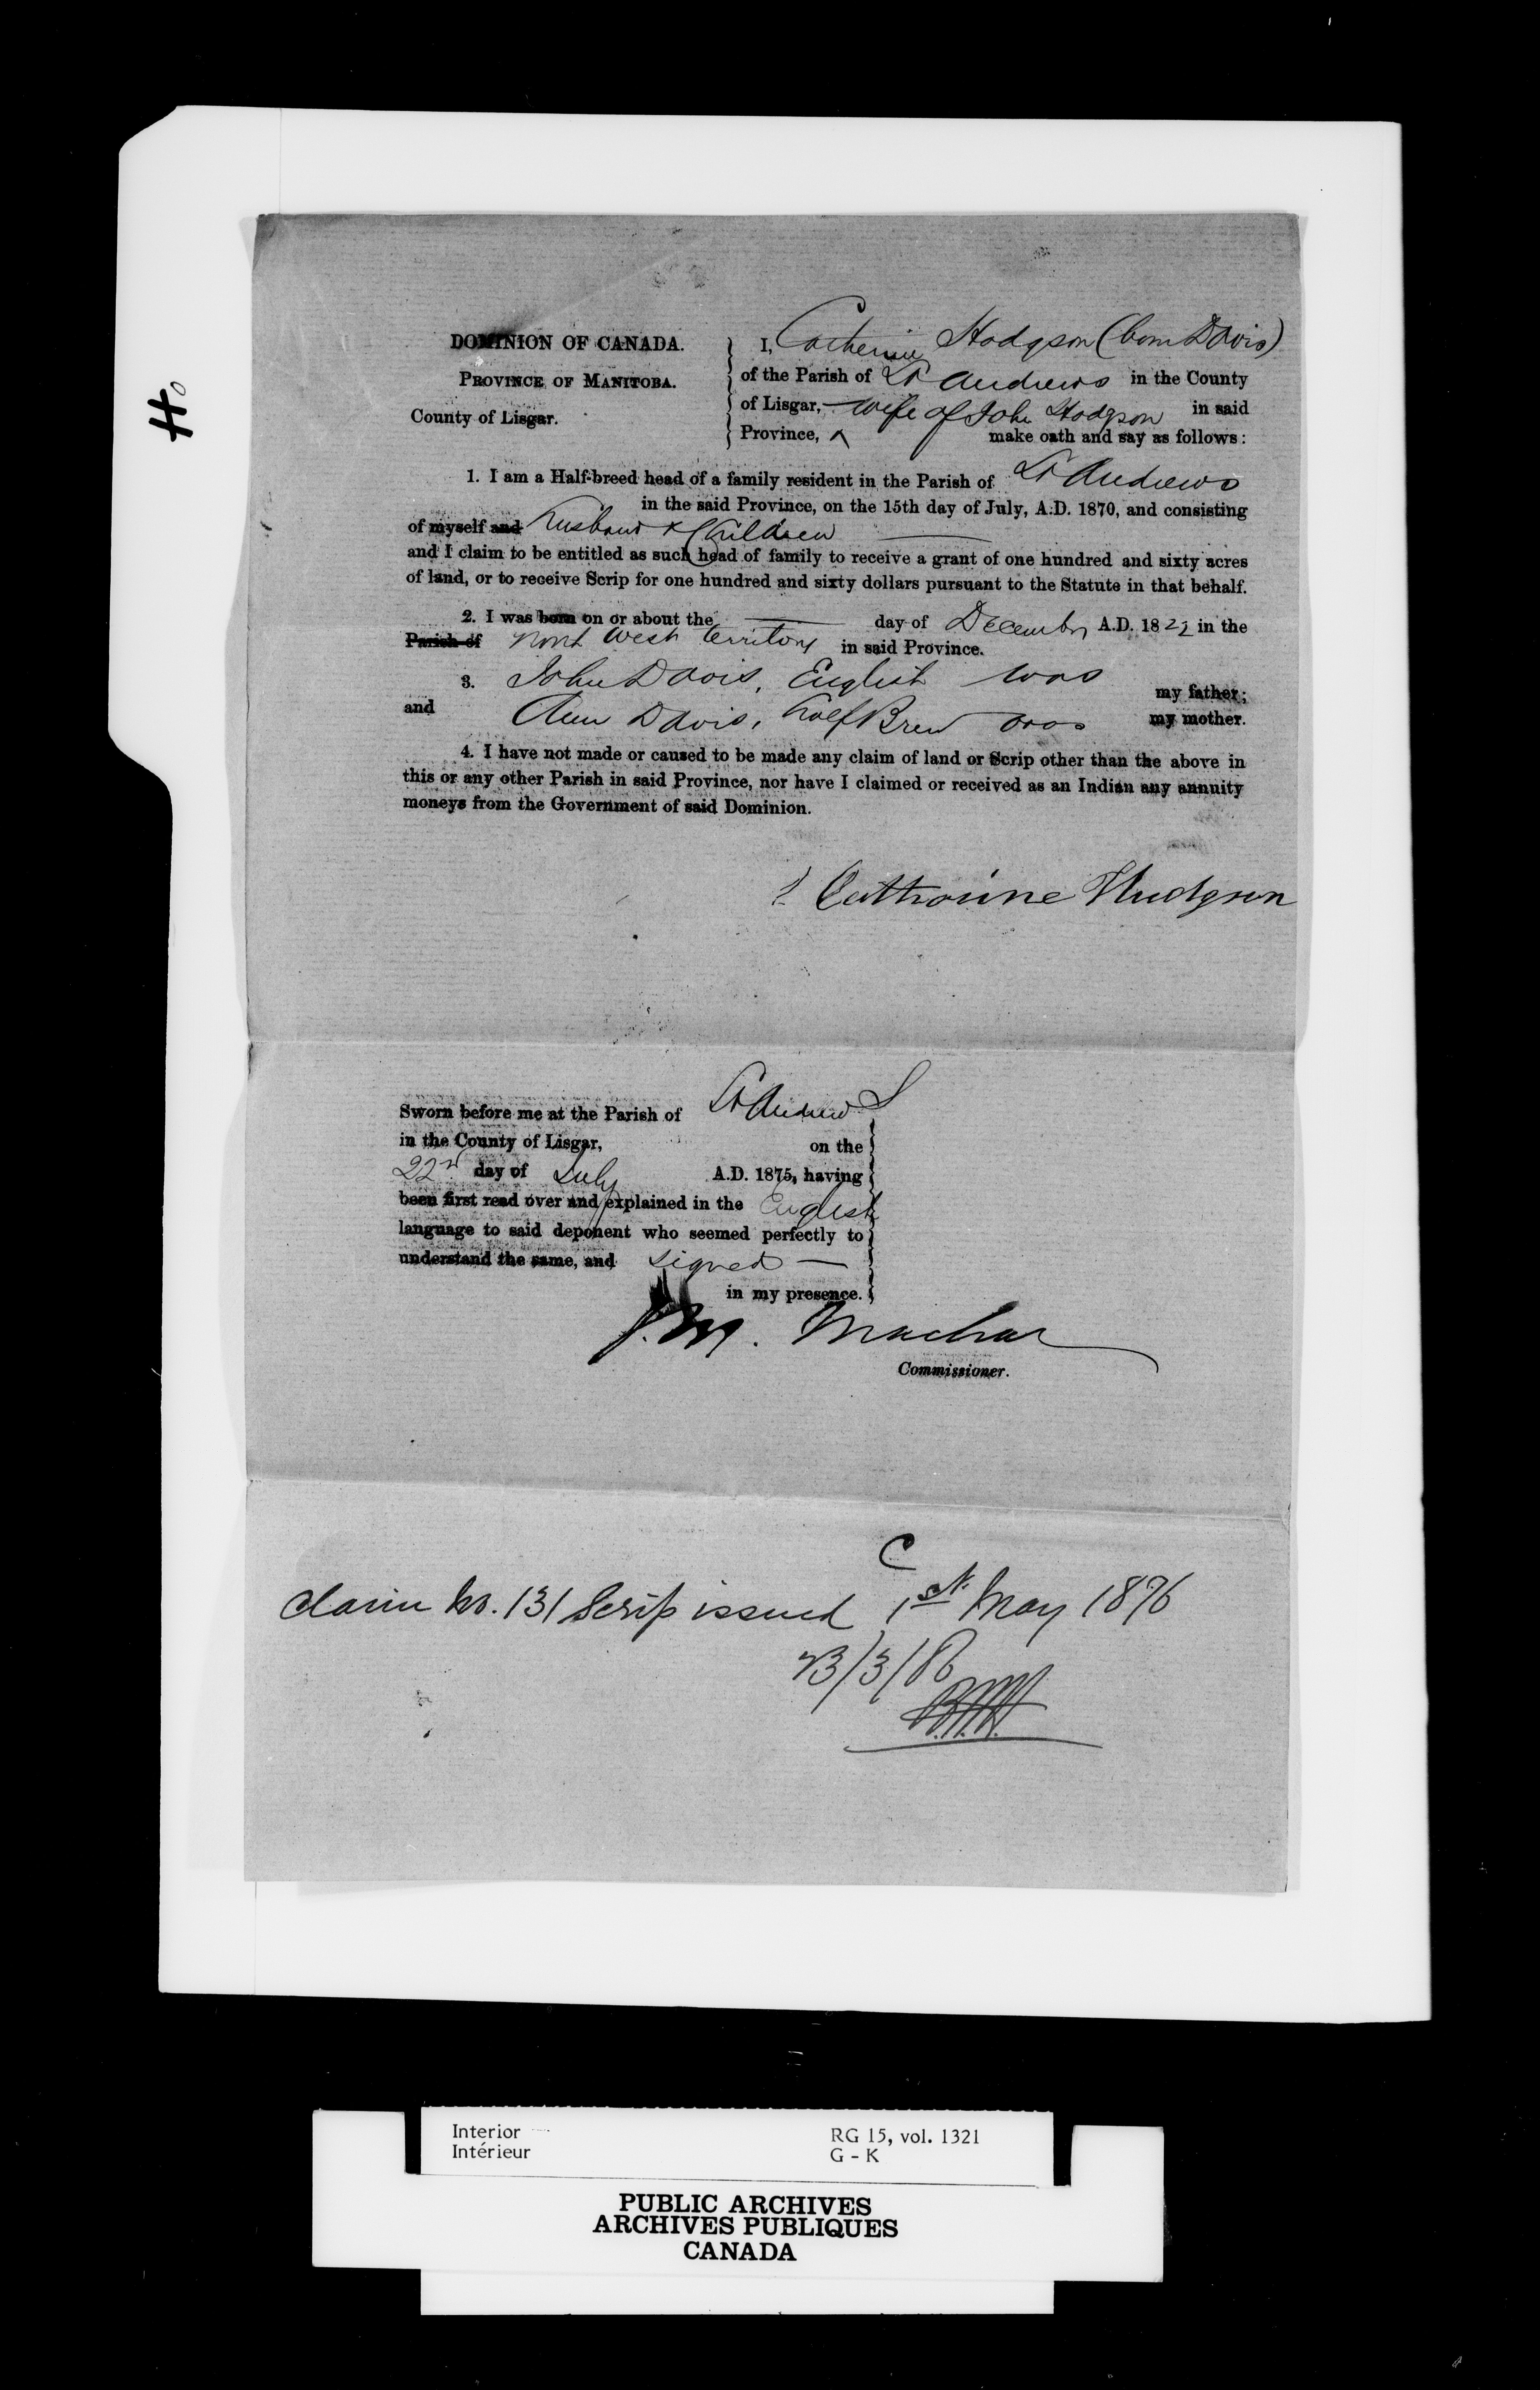 Ho
DOMINION OF CANADA.
PROVINCE OF MANITOBA.
County of Lisgar.
I, Catherine Hodgson (born Davis)
of the Parish of St Andrews in the County
of Lisgar, wife of John Hodgson in said
Province, make oath and say as follows:
1. I am a Half-breed head of a family resident in the Parish of St Andrews
in the said Province, on the 15th day of July, A.D. 1870, and consisting
of myself and husband & Children
and I claim to be entitled as such head of family to receive a grant of one hundred and sixty acres
of land, or to receive Scrip for one hundred and sixty dollars pursuant to the Statute in that behalf.
2. I was born on or about the — day of December A.D. 18 in the
Parish of North West Territory in said Province.
3. John Davis, English was my father;
and Ann Davis, half Breed was my mother.
4. I have not made or caused to be made any claim of land or Scrip other than the above in
this or any other Parish in said Province, nor have I claimed or received as an Indian any annuity
moneys from the Government of said Dominion.
Cathrouine Hudgson
Sworn before me at the Parish of St Andrews
in the County of Lisgar, on the
22nd day of July A.D. 1875, having
been first read over and explained in the English
language to said deponent who seemed perfectly to
understand the same, and signed —
in my presence.
J. M. Machar
Commissioner.
C
Claim No. 131 Scrip issued 1st May 1876
23/3/86
Interior
Intérieur
RG 15, vol. 1321
G - K
PUBLIC ARCHIVES
ARCHIVES PUBLIQUES
CANADA